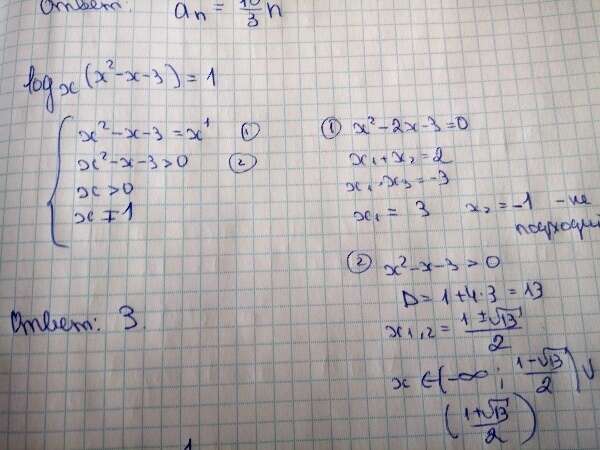 Ответ: aₙ = 10/3 n
logₓ(x²-x-3) = 1
{ x²-x-3 = x¹ ①
x²-x-3>0 ②
x>0
x≠1
① x²-2x-3=0
x₁+x₂=2
x₁·x₂=-3
x₁ = 3 x₂ = -1 - не
подходит
② x²-x-3>0
D = 1+4·3 = 13
x₁,₂ = (1±√13)/2
x ∈ (-∞; (1-√13)/2) ∪
((1+√13)/2)
Ответ: 3.